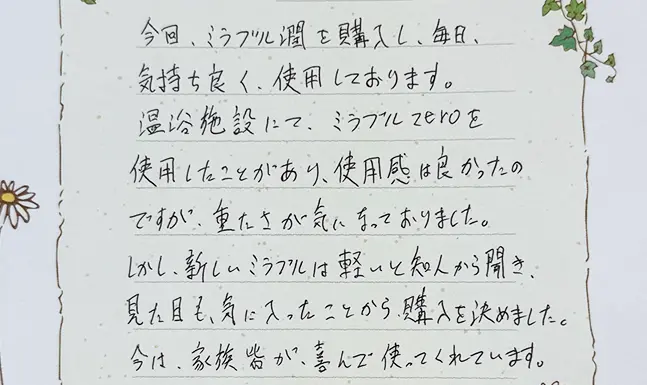 今回、ミラブル潤を購入し、毎日、
気持ち良く、使用しております。
温浴施設にて、ミラブルzeroを
使用したことがあり、使用感は良かったの
ですが、重たさが気になっておりました。
しかし、新しいミラブルは軽いと知人から聞き、
見た目も、気に入ったことから、購入を決めました。
今は、家族皆が、喜んで使ってくれています。